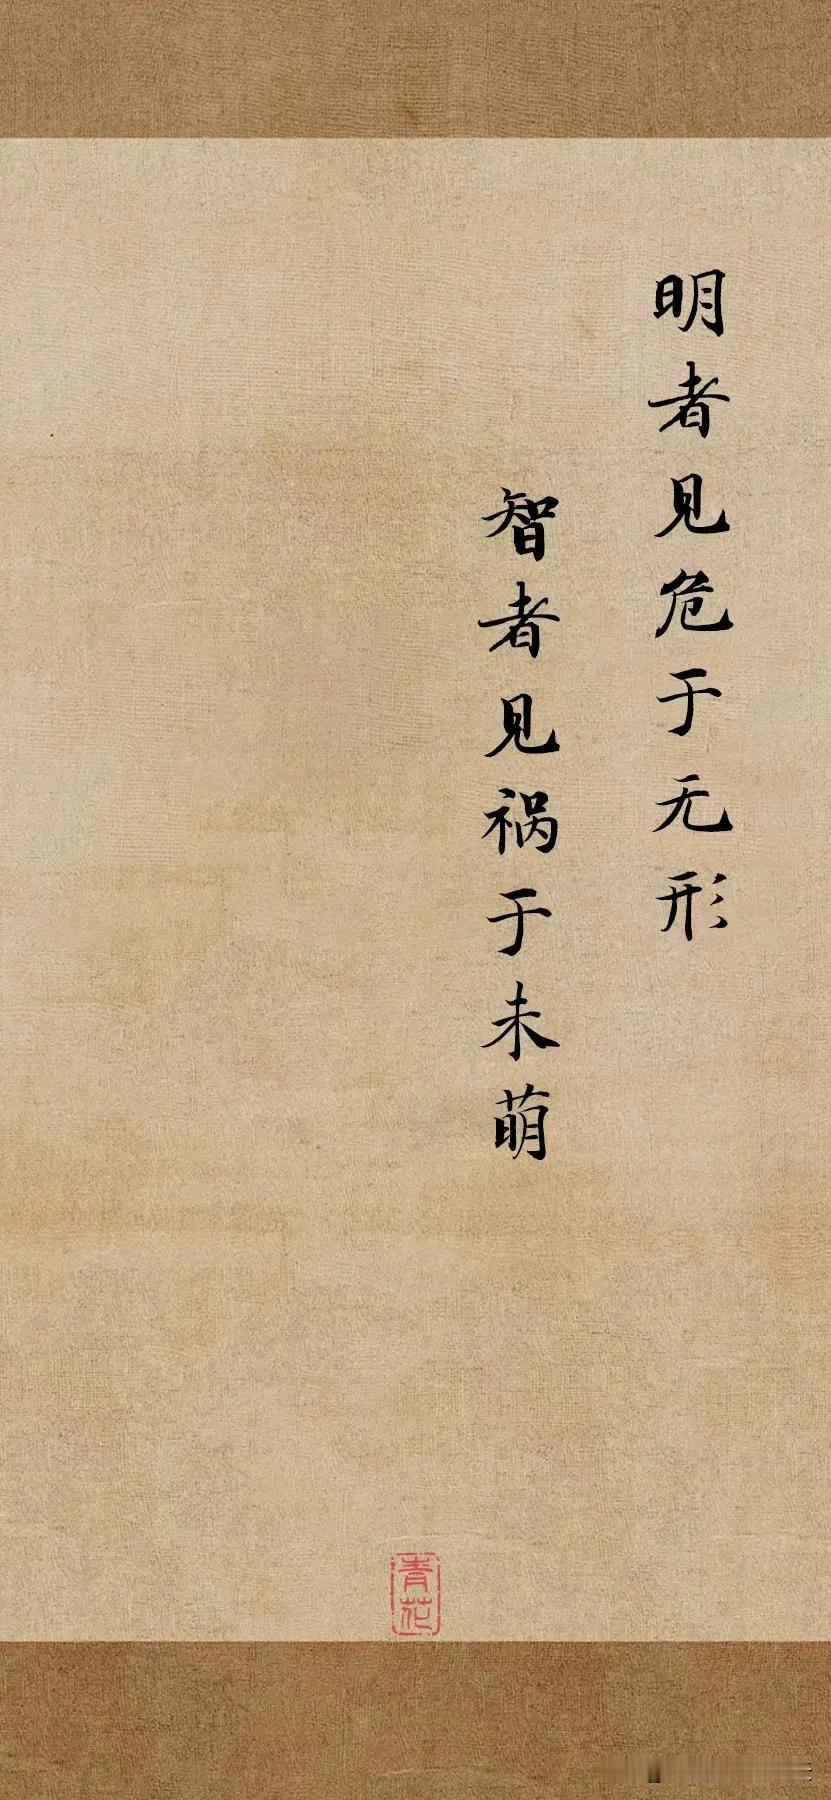 明者见危于无形
智者见祸于未萌
青花